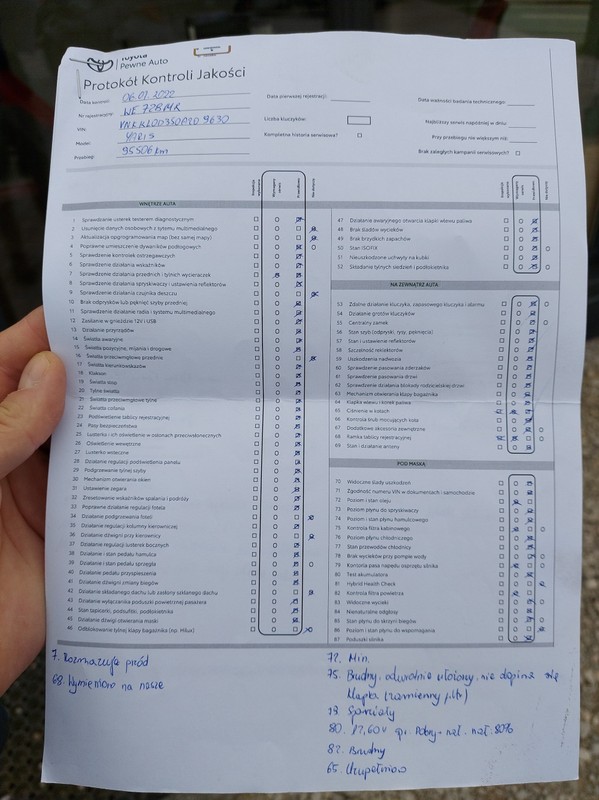 Toyota
Pewne Auto
Protokół Kontroli Jakości
Data kontroli: 06.01.2022
Nr rejestracyjny:
VIN:
Model: YARIS
Przebieg: 95506 km
Data pierwszej rejestracji:
Liczba kluczyków:
Kompletna historia serwisowa?
Data ważności badania technicznego:
Najbliższy serwis najpóźniej w dniu:
Przy przebiegu nie większym niż:
Brak zaległych kampanii serwisowych?
WNĘTRZE AUTA
1 Sprawdzanie usterek testerem diagnostycznym
2 Usunięcie danych osobowych z sytemu multimedialnego
3 Aktualizacja oprogramowania map (bez samej mapy)
4 Poprawne umieszczenie dywaników podłogowych
5 Sprawdzenie kontrolek ostrzegawczych
6 Sprawdzenie działania wskaźników
7 Sprawdzenie działania przednich i tylnych wycieraczek
8 Sprawdzenie działania spryskiwaczy i ustawienia reflektorów
9 Sprawdzenie działania czujnika deszczu
10 Brak odprysków lub pęknięć szyby przedniej
11 Sprawdzenie działania radia i systemu multimedialnego
12 Zasilanie w gnieździe 12V i USB
13 Działanie przyrządów
14 Światła awaryjne
15 Światła pozycyjne, mijania i drogowe
16 Światła przeciwmgłowe przednie
17 Światła kierunkowskazów
18 Klakson
19 Światła stop
20 Tylne światła
21 Światła przeciwmgłowe tylne
22 Światła cofania
23 Podświetlenie tablicy rejestracyjnej
24 Pasy bezpieczeństwa
25 Lusterko i ich oświetlenie w osłonach przeciwsłonecznych
26 Oświetlenie wewnętrzne
27 Lusterko wsteczne
28 Działanie regulacji podświetlania panelu
29 Podgrzewanie tylnej szyby
30 Mechanizm otwierania okien
31 Ustawienie zegara
32 Zresetowanie wskaźników spalania i podróży
33 Poprawne działanie regulacji fotela
34 Działanie podgrzewania foteli
35 Działanie regulacji kolumny kierowniczej
36 Działanie dźwigni przy kierownicy
37 Działanie regulacji lusterek bocznych
38 Działanie i stan pedału hamulca
39 Działanie i stan pedału sprzęgła
40 Działanie pedału przyspieszenia
41 Działanie dźwigni zmiany biegów
42 Działanie składanego dachu lub zasłony szklanego dachu
43 Działanie wyłącznika poduszki powietrznej pasażera
44 Stan tapicerki, podsufitki, podłokietnika
45 Działanie dźwigni otwierania maski
46 Odblokowanie tylnej klapy bagażnika (np. Hilux)
47 Działanie awaryjnego otwarcia klapki wlewu paliwa
48 Brak śladów wycieków
49 Brak brzydkich zapachów
50 Stan ISOFIX
51 Nieuszkodzone uchwyty na kubki
52 Składanie tylnych siedzeń i podłokietnika
NA ZEWNĄTRZ AUTA
53 Zdalne działanie kluczyka, zapasowego kluczyka i alarmu
54 Działanie grotów kluczyków
55 Centralny zamek
56 Stan szyb (odpryski, rysy, pęknięcia)
57 Stan i ustawienie reflektorów
58 Szczelność reflektorów
59 Uszkodzenia nadwozia
60 Sprawdzenie pasowania zderzaków
61 Sprawdzenie pasowania drzwi
62 Sprawdzenie działania blokady rodzicielskiej drzwi
63 Mechanizm otwierania klapy bagażnika
64 Klapka wlewu i korek paliwa
65 Ciśnienie w kołach
66 Kontrola śrub mocujących koła
67 Dodatkowe akcesoria zewnętrzne
68 Ramka tablicy rejestracyjnej
69 Stan i działanie anteny
POD MASKĄ
70 Widoczne ślady uszkodzeń
71 Zgodność numeru VIN w dokumentach i samochodzie
72 Poziom i stan oleju
73 Poziom płynu do spryskiwaczy
74 Poziom i stan płynu hamulcowego
75 Kontrola filtra kabinowego
76 Poziom płynu chłodniczego
77 Stan przewodów chłodnicy
78 Brak wycieków przy pompie wody
79 Kontrola pasa napędu osprzętu silnika
80 Test akumulatora
81 Hybrid Health Check
82 Kontrola filtra powietrza
83 Widoczne wycieki
84 Nienaturalne odgłosy
85 Stan płynu do skrzyni biegów
86 Poziom i stan płynu do wspomagania
87 Poduszki silnika
7. Rozmazuje przód
68. Wymieniono na nasze
72. Min.
75. Brudny, odwrotnie ułożony, nie dopina się
klapka (zamienny filtr)
79. Sparciały
80. 12,60V
82. Brudny
65. Uzupełniono